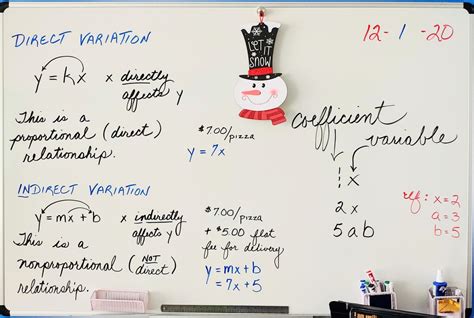 DIRECT VARIATION
y = kx
x directly
affects y
This is a
proportional (direct)
relationship.
$7.00/pizza
y = 7x
INDIRECT VARIATION
y = mx + b
x indirectly
affects y
This is a
nonproportional (NOT direct)
relationship.
$7.00/pizza
+ $5.00 flat
fee for delivery
y = mx + b
= 7x + 5
LET IT
SNOW
12-1-20
coefficient
variable
1x
2x
5ab
x = 2
a = 3
b = 5